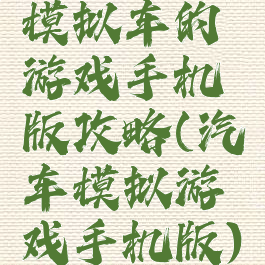 模拟车的
游戏手机
版攻略(汽
车模拟游
戏手机版)